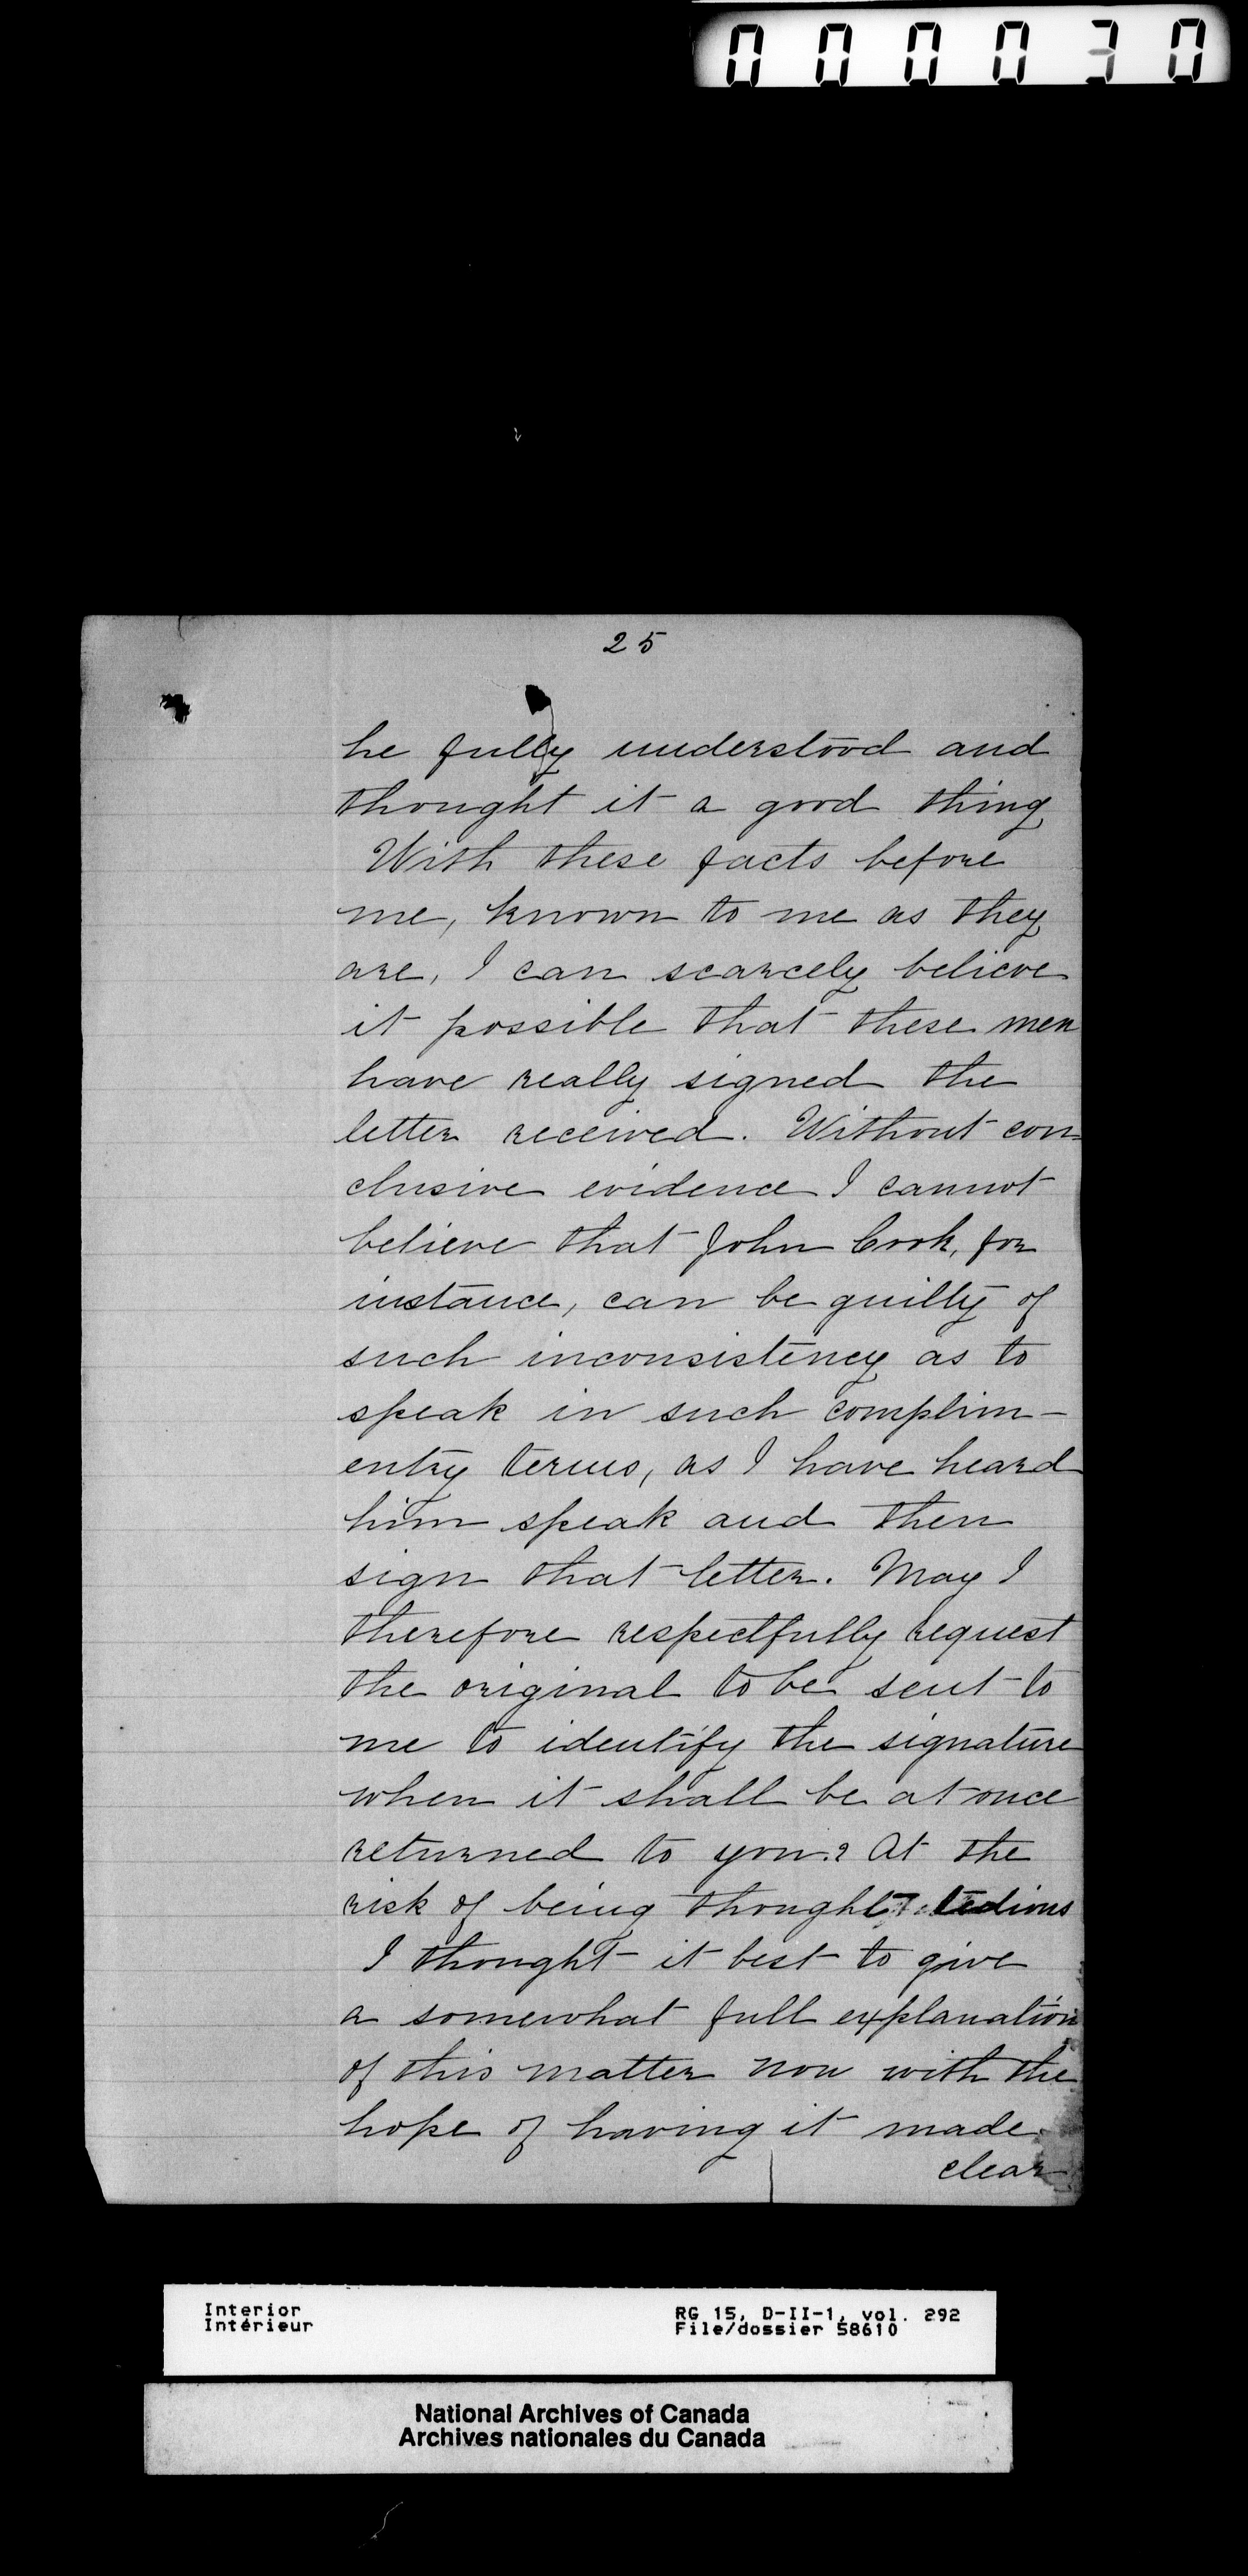 000030
25
he fully understood and
thought it a good thing
With these facts before
me, known to me as they
are, I can scarcely believe
it possible that these men
have really signed the
letter received. Without con-
clusive evidence I cannot
believe that John Cook, for
instance, can be guilty of
such inconsistency as to
speak in such complim-
entry terms, as I have heard
him speak and then
sign that letter. May I
therefore respectfully request
the original to be sent to
me to identify the signature
when it shall be at once
returned to you? At the
risk of being thought tedious
I thought it best to give
a somewhat full explanation
of this matter now with the
hope of having it made
clear
Interior
Intérieur
RG 15, D-II-1, vol. 292
File/dossier 58610
National Archives of Canada
Archives nationales du Canada